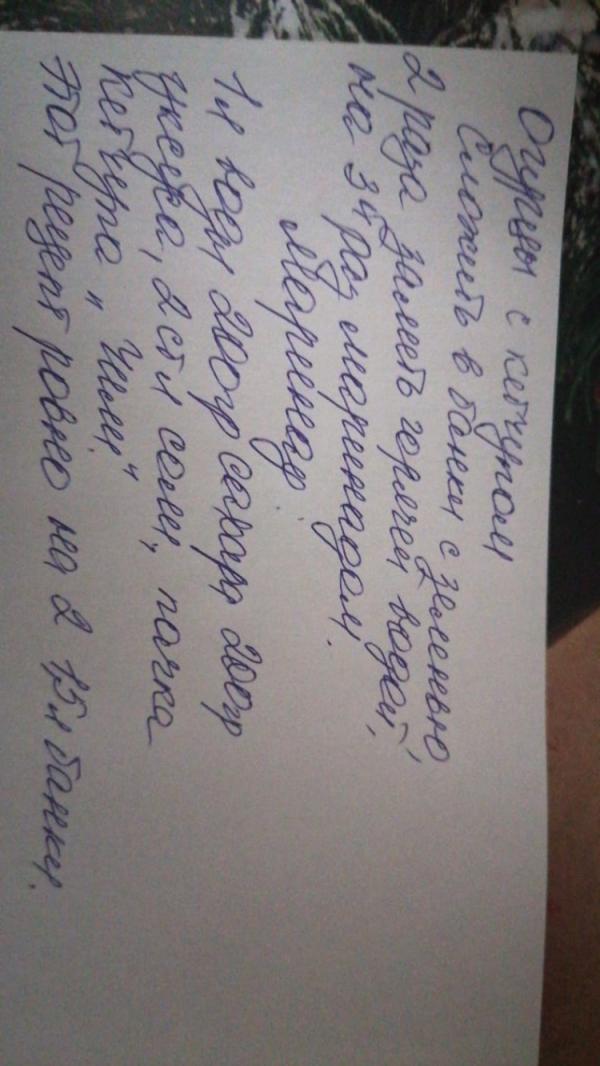 Огурцы с кетчупом
Сложить в банки с зеленью
2 раза залить горячей водой,
на 3й раз маринадом.
Маринад:
1л воды 200гр сахара 200гр
уксуса, 2 ст л соли, пачка
кетчупа "Чили"
Этот рецепт ровно на 2 1,5л банки.